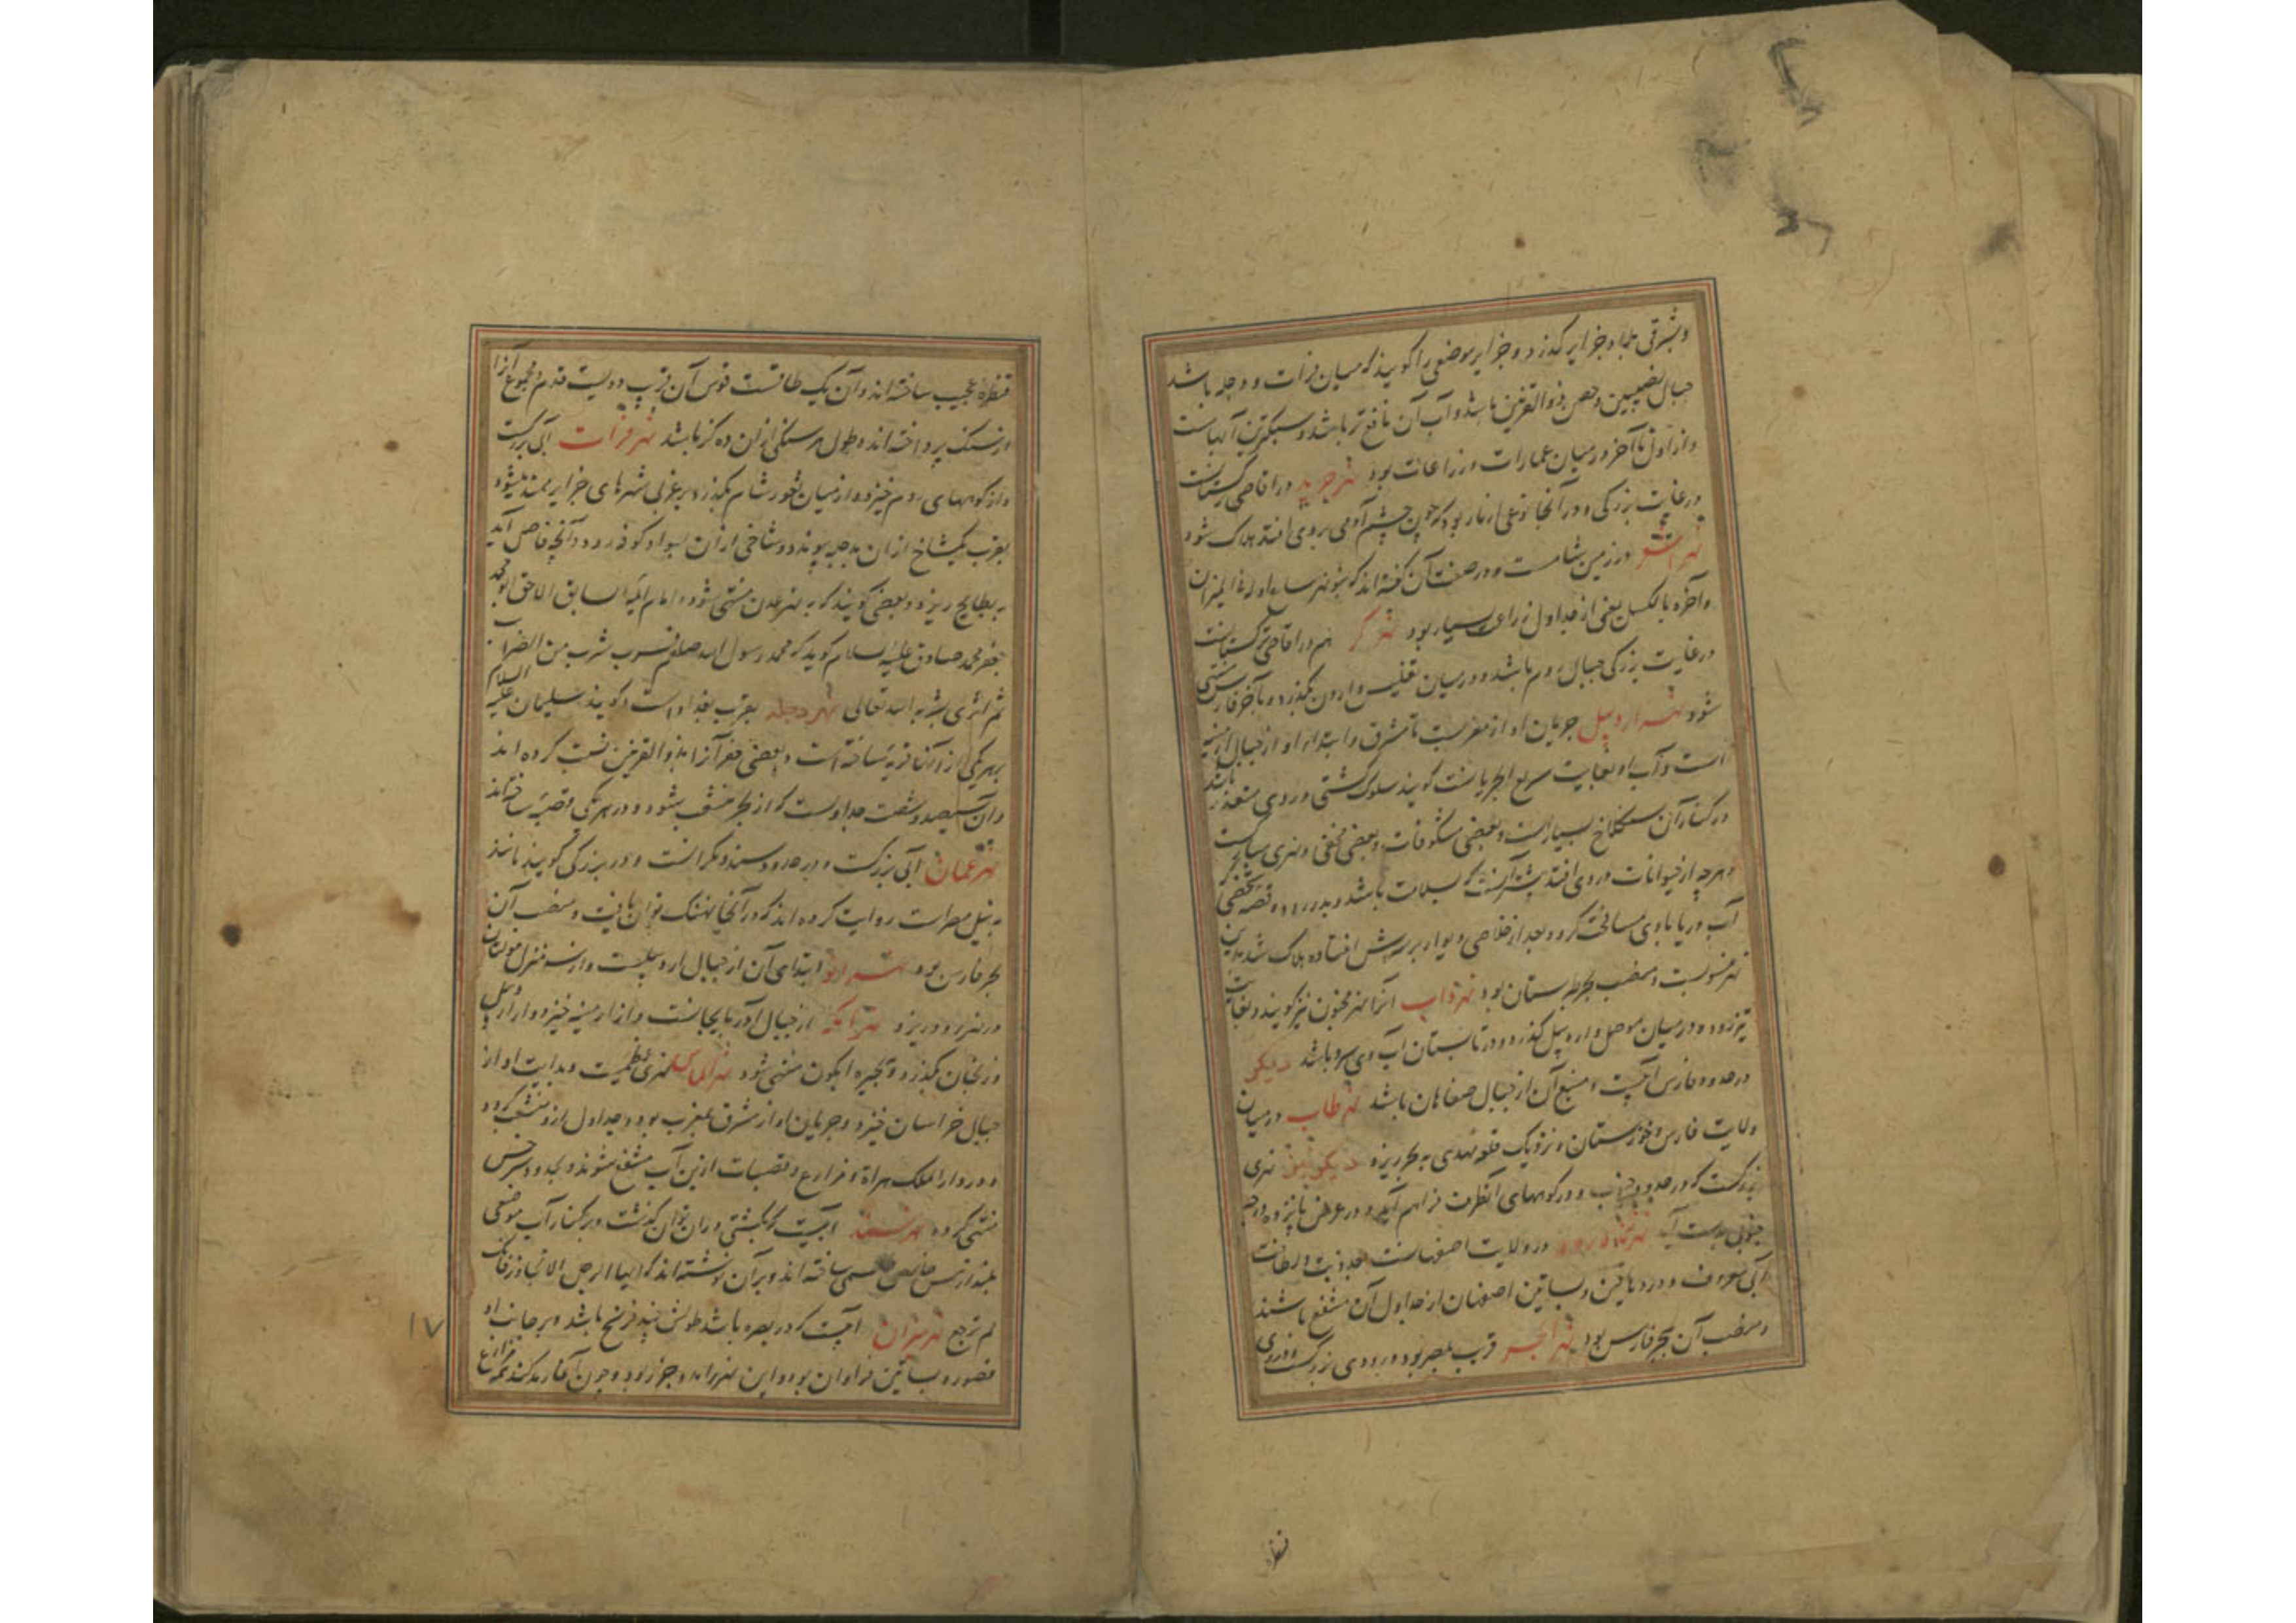 و شرقی بلاد جزایر گذرد و جزایر موضعی را گویند که میان فرات و دجله باشد
جبال نصیبین و حصن ذو القرنین باشد و آب آن نافع تر باشد و سبکترین آبهاست
و از اول تا آخر در میان عمارات و زراعات بود نهر جرید در اقاصی ترکستانست
در غایت بزرگی و در آنجا نوعی از مار بود که چون چشم آدمی بر وی افتد هلاک شود
نهر در زمین شامست و در صفت آن گفته اند که هو نهر ساء اوله فی المیزان
و آخره بالکیل یعنی از جداول زراعت بسیار بود نهر کر هم در اقاصی ترکستانست
در غایت بزرگی جبال روم باشد و در میان تفلیس و اردن بگذرد و بآخر فارس منتهی
شود نهر اردبیل جریان او از مغربست تا مشرق و ابتداء او از جبال ارمنیه
است و آب او بغایت سریع الجریانست گویند سلوک کشتی در وی متعذر باشد
در کنار آن سنکلاخ بسیارست و بعضی مکشوفات و بعضی مخفی و نهری مبارکست
و هرچه از حیوانات در وی افتد بیشتر آنست که بسلامت باشد و بدر رود و قصه شخصی
آب دریا با وی مسافتی کرد و بعد از خلاصی دیوار بر سرش افتاده هلاک شد بدین
نهر منسوبست و مصب بحر طبرستان بود نهر ذاب آنرا نهر مجنون نیز گویند و بغایت
تیز رود و در میان موصل و اردبیل گذرد و در تابستان آب وی سرد باشد دیکر
در حدود فارس آبیست و منبع آن از جبال صفاهان باشد نهر طاب در میان
ولایت فارس و خوزستان و نزدیک قلعه مهدی به بحر ریزد دیکر نهری
بزرکست که در حدود و در کوههای آنطرف فراهم آید و در عرض پانزده درجه
جنوبی بدست آید نهر زرنرود در ولایت اصفهانست بعذوبت و لطافت
آبی معروف و در دهاقین و بساتین اصفهان از جداول آن منتفع باشند
و مصب آن بحر فارس بود نهر الجسر قرب بمصر بود و رودی بزرکست و بر وی
قنطره
قنطره عجیب ساخته اند و آن یک طاقست قوس آن قریب دویست قدم و مجموع آنرا
از سنک پرداخته اند و طول هر سنکی از آن ده گز باشد نهر فرات آبی بزرکست
و از کوههای روم خیزد و از میان ثغور شام بگذرد و بر غربی شهرهای جزایر ممتد میشود
بقرب یکشاخ از آن بدجله پیوندد و شاخی از آن بسواد کوفه رود و آنچه فاضل آید
به بطایح ریزد و بعضی گویند که به نهر عدن منتهی شود و امام ایمة السابق اللاحق ابو محمد
جعفر محمد صادق علیه السلام گوید که محمد رسول الله صلعم شرب من الفرات
ثم اثری بشربه الله تعالی نهر دجله بقرب بغداد است گویند سلیمان علیه السلام
بهر یکی از آنها قریه ساخته است و بعضی حفر آنرا بذو القرنین نسبت کرده اند
و آن سیصد و شصت جداولست که از بحر منشعب بشود و در هر یکی قصبه ساخته اند
نهر عمان آبی بزرکست و در حدود سند و مکرانست و در بزرگی گویند مانند
به نیل مصر است روایت کرده اند که در آنجا نهنک توان یافت و مصب آن
بحر فارس بود نهر ابتدای آن از جبال اردبیلست و از سه منزل مولتان
در نهر رود ریزد نهر از جبال آذربایجانست و از ارمنیه خیزد و از اردبیل
و زنجان بگذرد و ببحیره ایکون منتهی شود نهر نهری عظیمست و بدایت او از
جبال خراسان خیزد و جریان او از شرق بمغرب بود و جداول از و منشعب کردد
و در دار الملک هراة و مزارع و قصبات ازین آب منتفع شوند و بحدود سرخس
منتهی کردد نهر آبیست که بکشتی در آن توان گذشت و بر کنار آب موضعی
بلند از مس جانب ساخته اند و بر آن نوشته اند که ایها الرجل لا تجاوز فانک
لم ترجع نهر میزان آبیست که در بصره باشد طولش چند فرسخ باشد و بر جانب او
قصور و بساتین فراوان بود و این نهر را مد و جزر بود و چون آن آغاز مد کند همه مزارع
۱۷